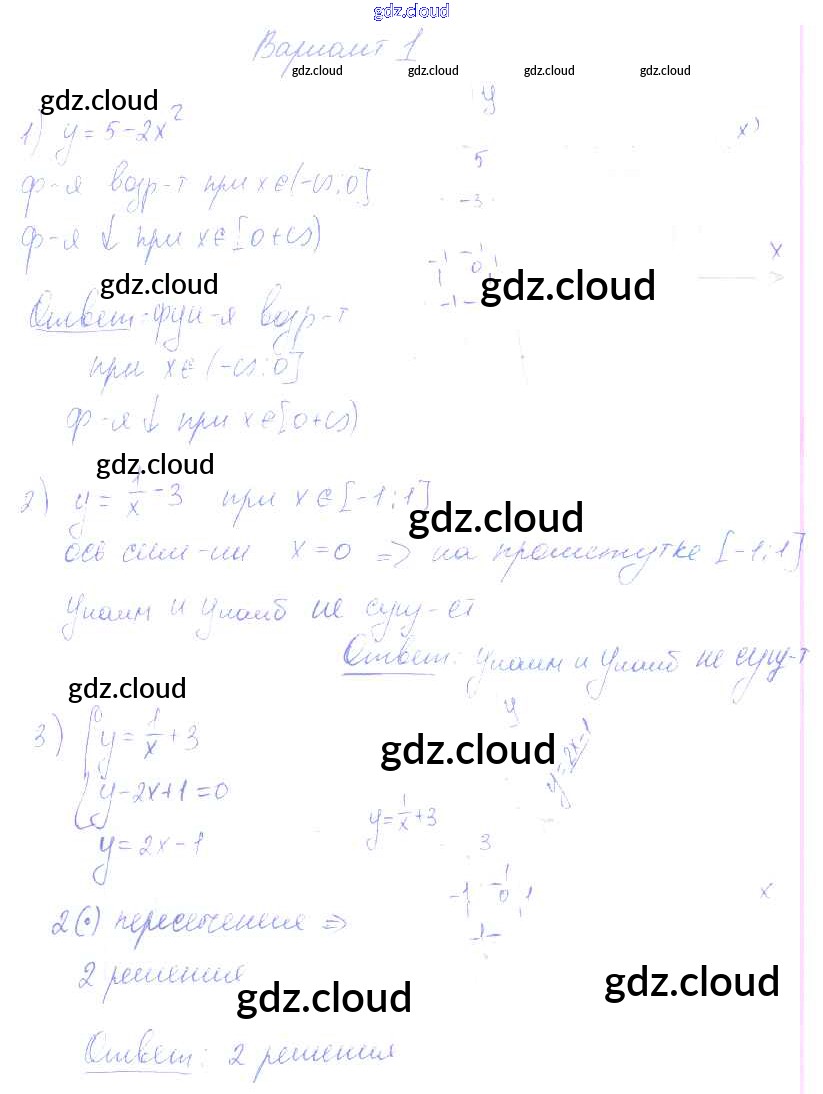 gdz.cloud
Вариант 1
gdz.cloud gdz.cloud gdz.cloud gdz.cloud
gdz.cloud
1) y = 5 - 2x²
ф-я возр-т при x ∈ (-∞; 0]
ф-я ↓ при x ∈ [0 +∞)
y
x
5
-3
-1 0 1
-1
x
gdz.cloud
gdz.cloud
Ответ: фун-я возр-т
при x ∈ (-∞; 0]
ф-я ↓ при x ∈ [0 +∞)
gdz.cloud
2) y = 1/x - 3 при x ∈ [-1; 1]
gdz.cloud
ось сим-ии x = 0 => на промежутке [-1; 1]
yнаим и yнаиб не сущ-ет
Ответ: yнаим и yнаиб не сущ-т
gdz.cloud
3) { y = 1/x + 3
y - 2x + 1 = 0
y = 2x - 1
gdz.cloud
y
y = 2x - 1
y = 1/x + 3
3
-1 0 1
-1
x
2(·) пересечения =>
2 решения
gdz.cloud
gdz.cloud
Ответ: 2 решения